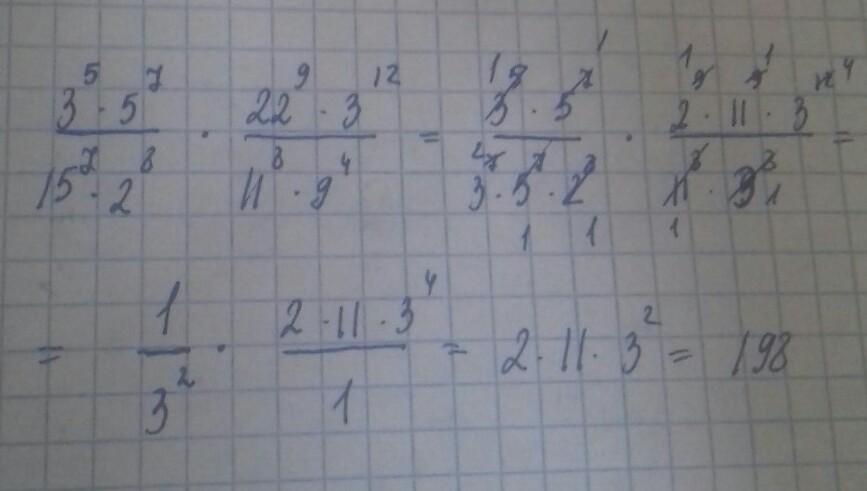 3⁵ · 5⁷ / 15⁷ · 2⁸ · 22⁹ · 3¹² / 11⁸ · 9⁴ = 3⁵ · 5⁷ / 3⁷ · 5⁷ · 2⁸ · 2⁹ · 11⁹ · 3¹² / 11⁸ · 3⁸ =
= 1 / 3² · 2 · 11 · 3⁴ / 1 = 2 · 11 · 3² = 198